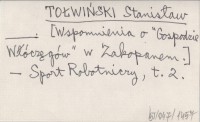 TOŁWIŃSKI Stanisław
[Wspomnienia o "Gospodzie
Włóczęgów" w Zakopanem.]
– Sport Robotniczy, t. 2.